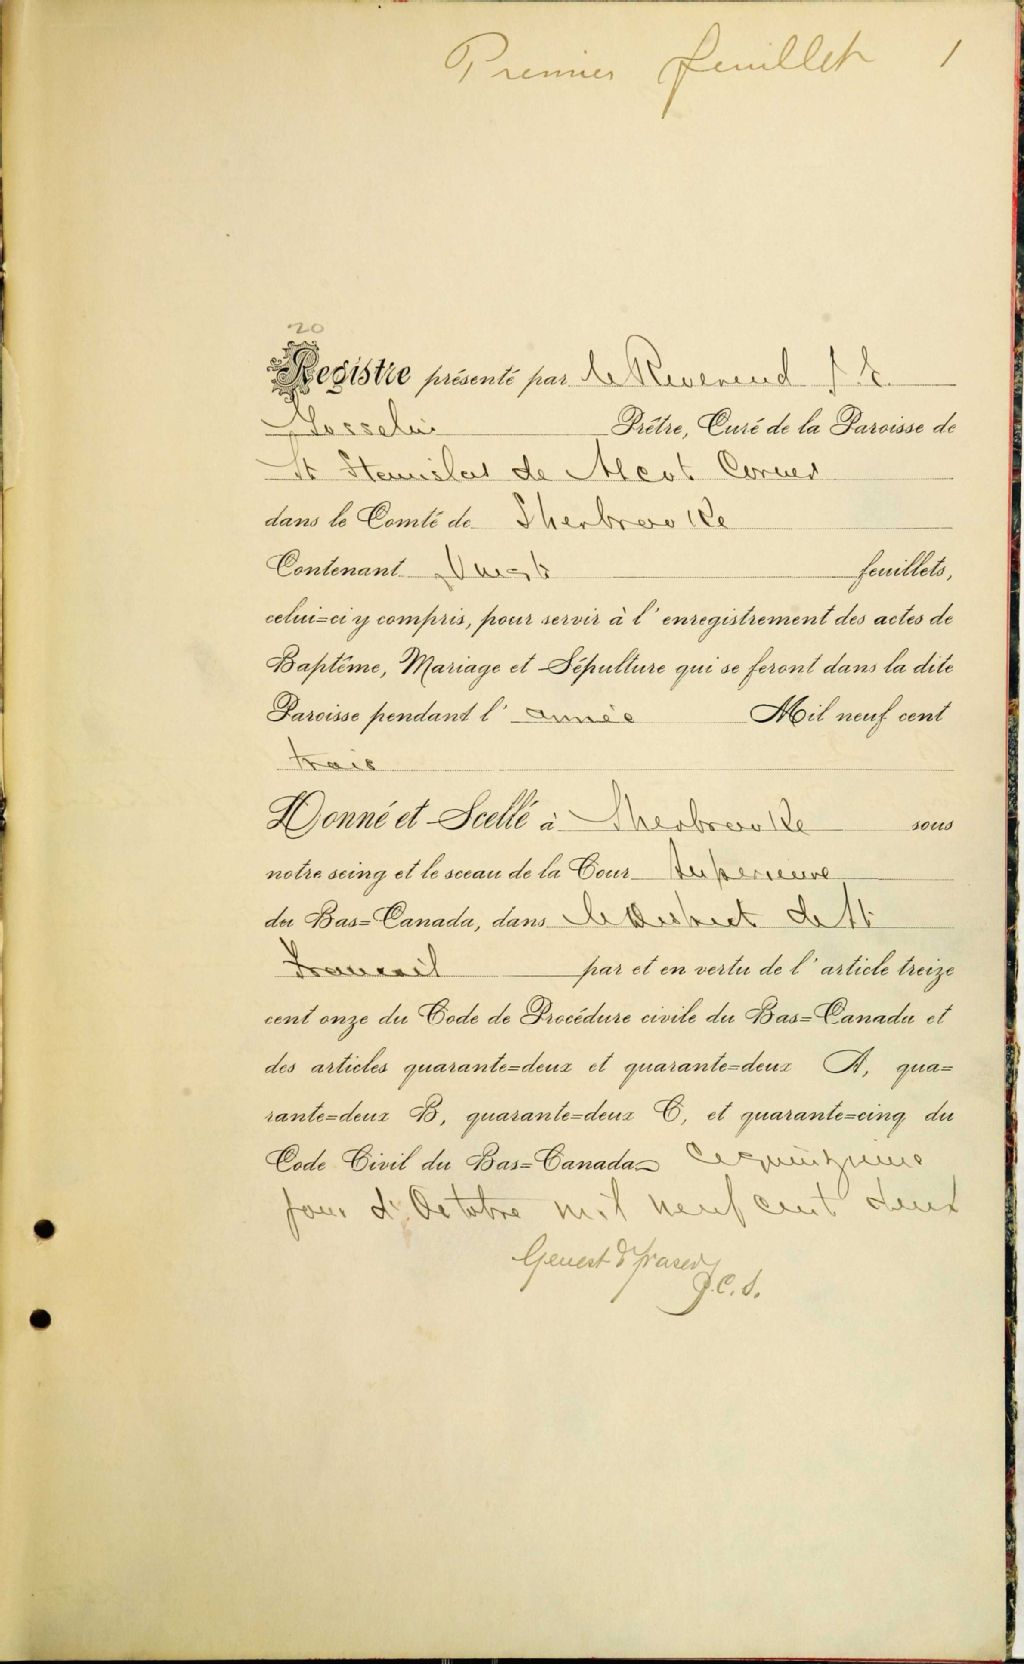 Premier feuillet 1
20
Registre présenté par le Révérend J. E.
Gosselin Prêtre, Curé de la Paroisse de
St Stanislas de Ascot Corner
dans le Comté de Sherbrooke
Contenant Vingt feuillets,
celui=ci y compris, pour servir à l'enregistrement des actes de
Baptême, Mariage et Sépulture qui se feront dans la dite
Paroisse pendant l'année Mil neuf cent
trois
Donné et Scellé à Sherbrooke sous
notre seing et le sceau de la Cour Supérieure
du Bas=Canada, dans le District de St
François par et en vertu de l'article treize
cent onze du Code de Procédure civile du Bas=Canada et
des articles quarante=deux et quarante=deux A, qua=
rante=deux B, quarante=deux C, et quarante=cinq du
Code Civil du Bas=Canada ce quinzieme
jour d'Octobre mil neuf cent deux
Genest & Fraser
P.C.S.